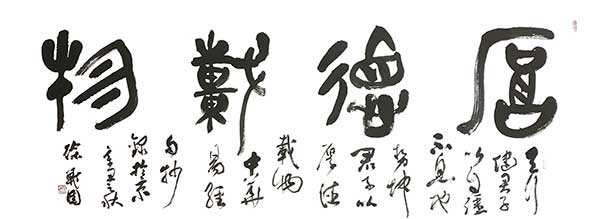 厚德載物
天行
健君子
以自强
不息地
势坤
君子以
厚德
載物
中華
易經
句抄
錄於京